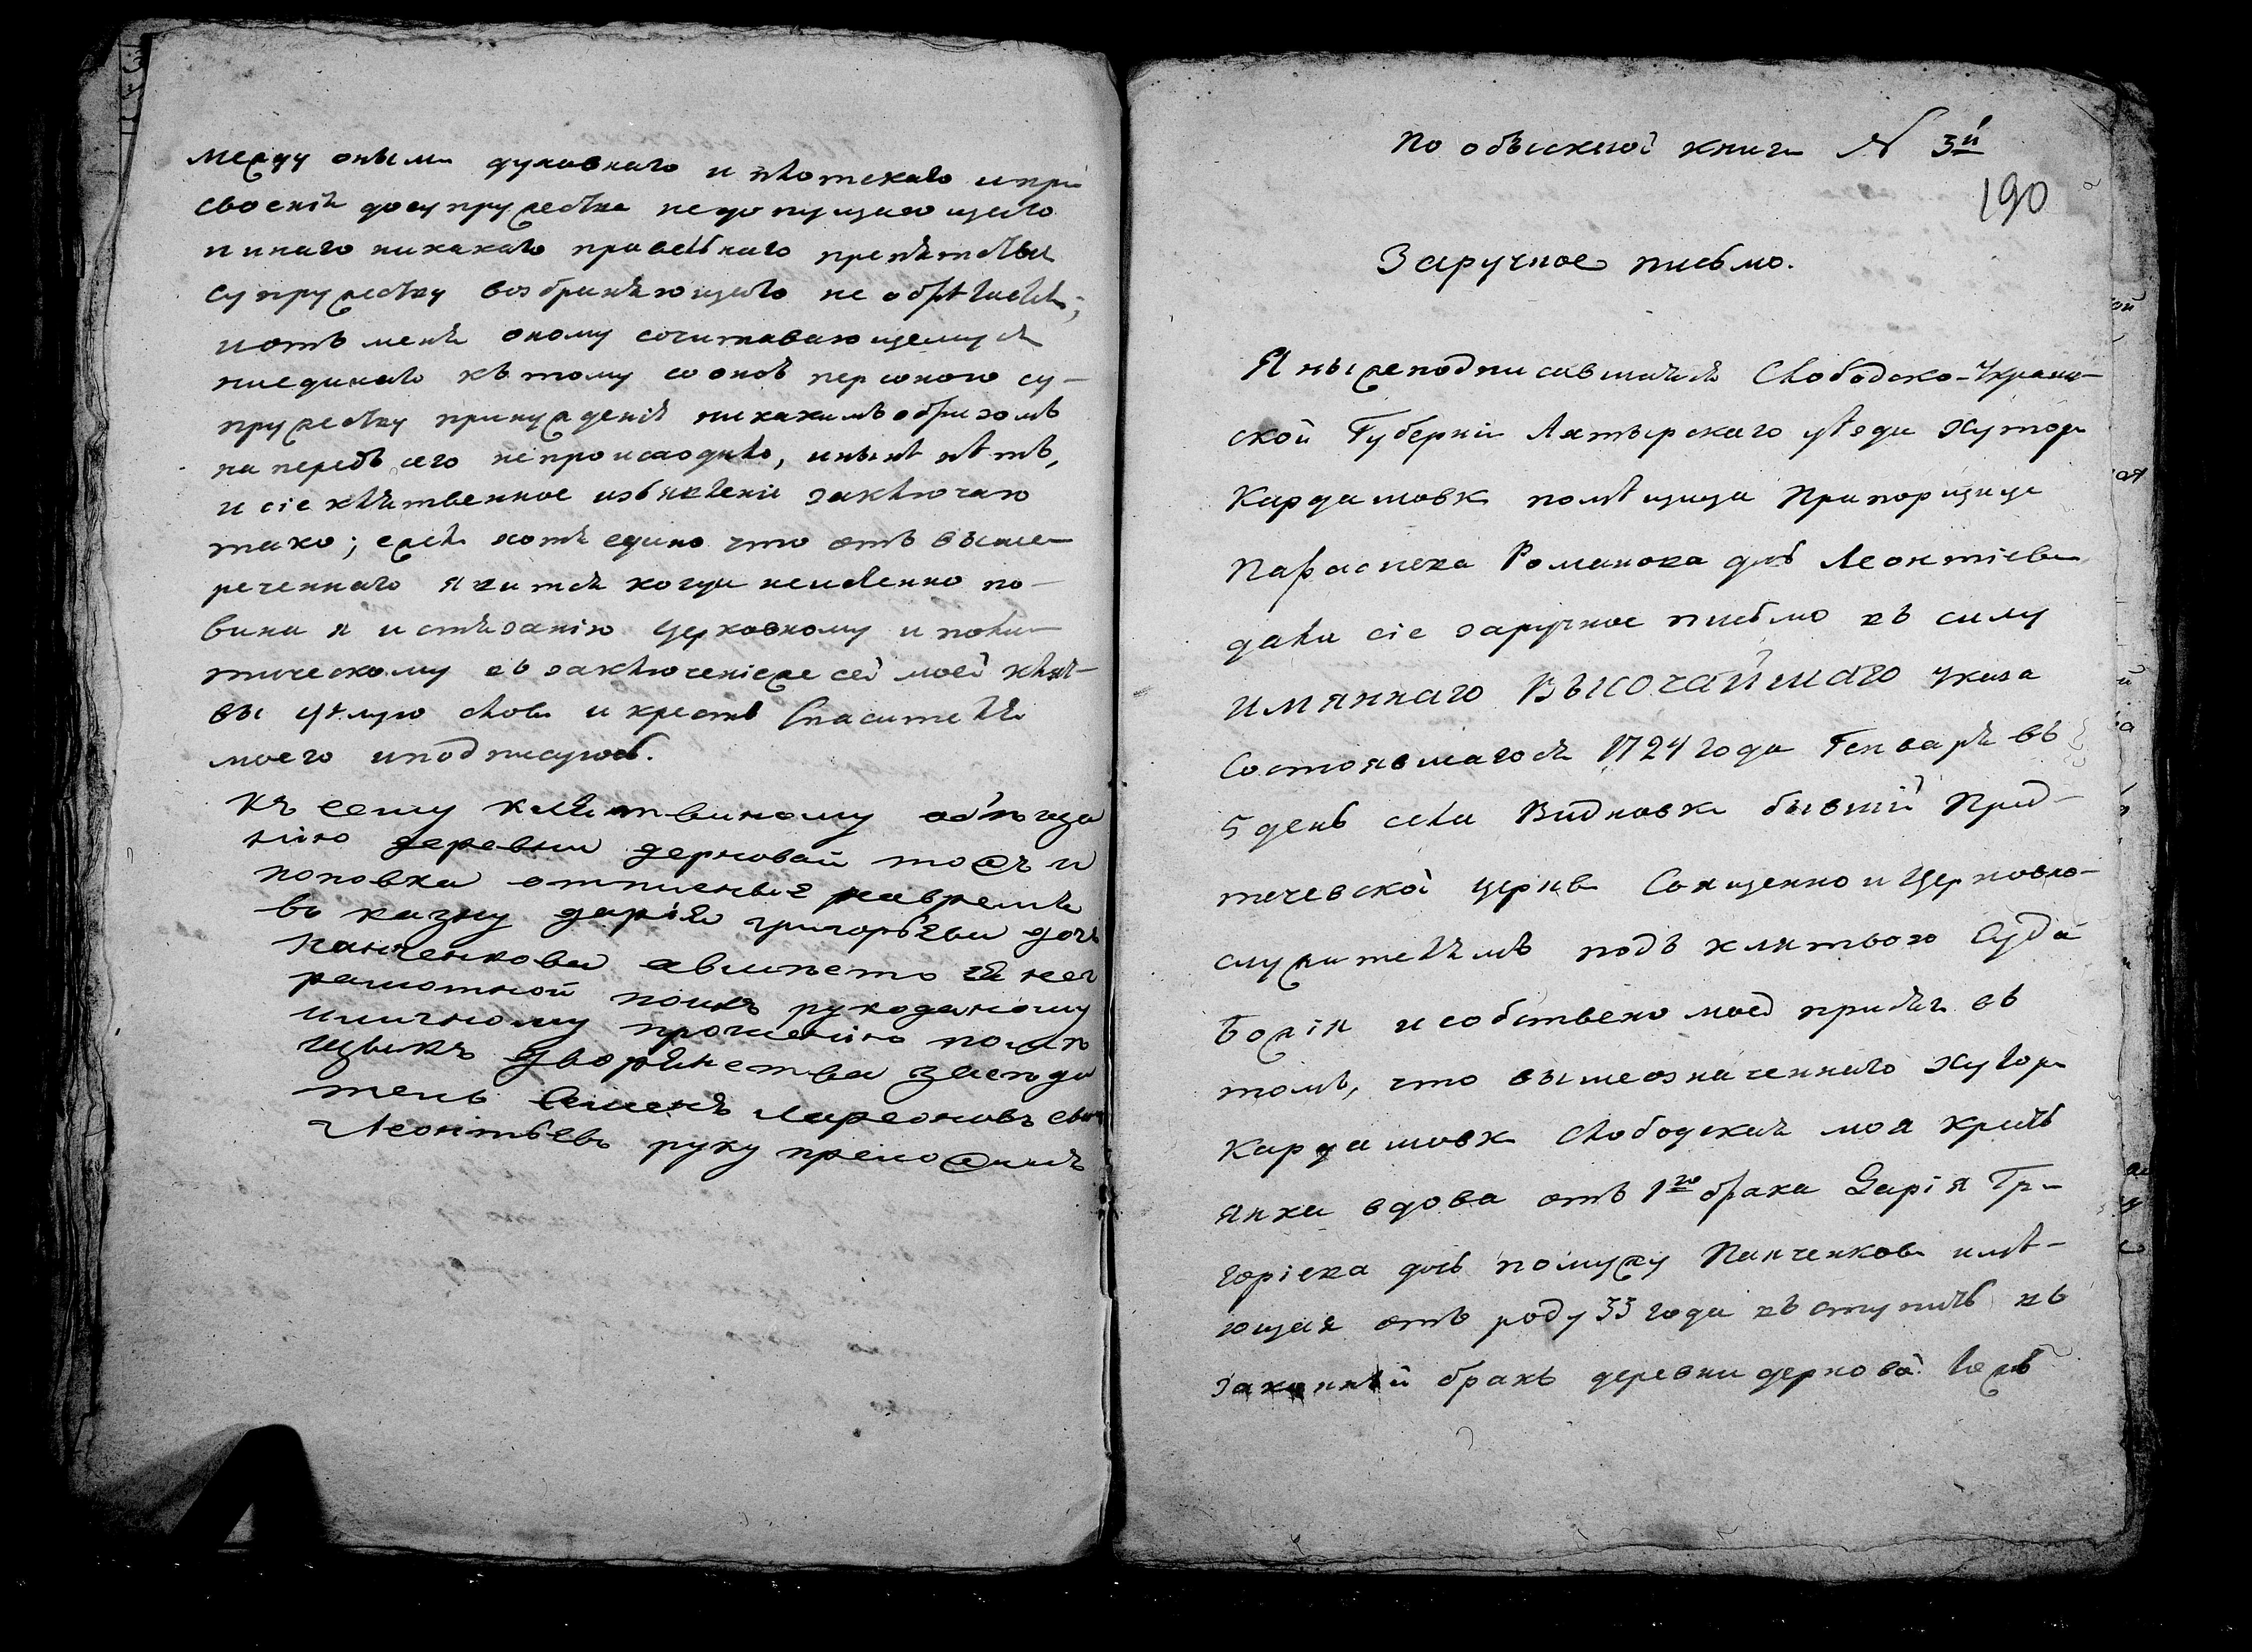 между оными духовнаго и плотскаго и при
своенія до супружества не допущающаго
и инаго никакаго правелнаго препятствия
супружеству возбраняющаго не обрѣталась;
и отъ меня оному сочитавающемуся
ни единаго къ тому со онов персоною су-
пружеству принужденія никакимъ образомъ
на передъ сего не происходило, и нынѣ нѣтъ,
и сіе клятвенное изъявленіе заключаю
тако; ежели хотя едино что отъ выше
реченнаго явится когда неистенно по-
винна я истязанію церковному и поли
тическому въ заключеніеже сей моей клят-
вы цѣлую слова и крестъ Спасителя
моего и подписуюсь.
Къ сему клятвиному обѣща
нию деревни дерновай тожъ и
поповка отписныя навремя
въ казну дарія григорьѣва дочъ
панченкова авместо ея нег
рамотной поихъ рукоданому
иличному прошению помѣ
щыкъ дворянства заседа
тель Семенъ Ларіоновъ сынъ
Леонтьѣвъ руку преложилъ
По обыскной книги № 3й
190
Заручное письмо.
Я ниже подписавшаяся Слободско-Украин-
ской Губерніи Ахтырскаго уѣзда Хутора
Кардашовки помѣщица Прапорщица
Парасиева Романова дочь Леонтіева
дала сіе заручное письмо въ силу
имяннаго ВЫСОЧАЙШАГО Указа
Состоявшагося 1724 года Генваря въ
5 день села Видновки бывшій Пред-
течевской церкви Священно и Церковно-
служителямъ подъ клятвою Суда
Божія и собствено моей присяги въ
томъ, что вышеозначеннаго Хутора
Кардашовки Слободская моя крить
янка вдова отъ 1го брака Дарія Гри
горіева дочь по мужу Панченкова имѣ-
ющая отъ роду 33 года въступить въ
законный бракъ деревни дерновой тожъ